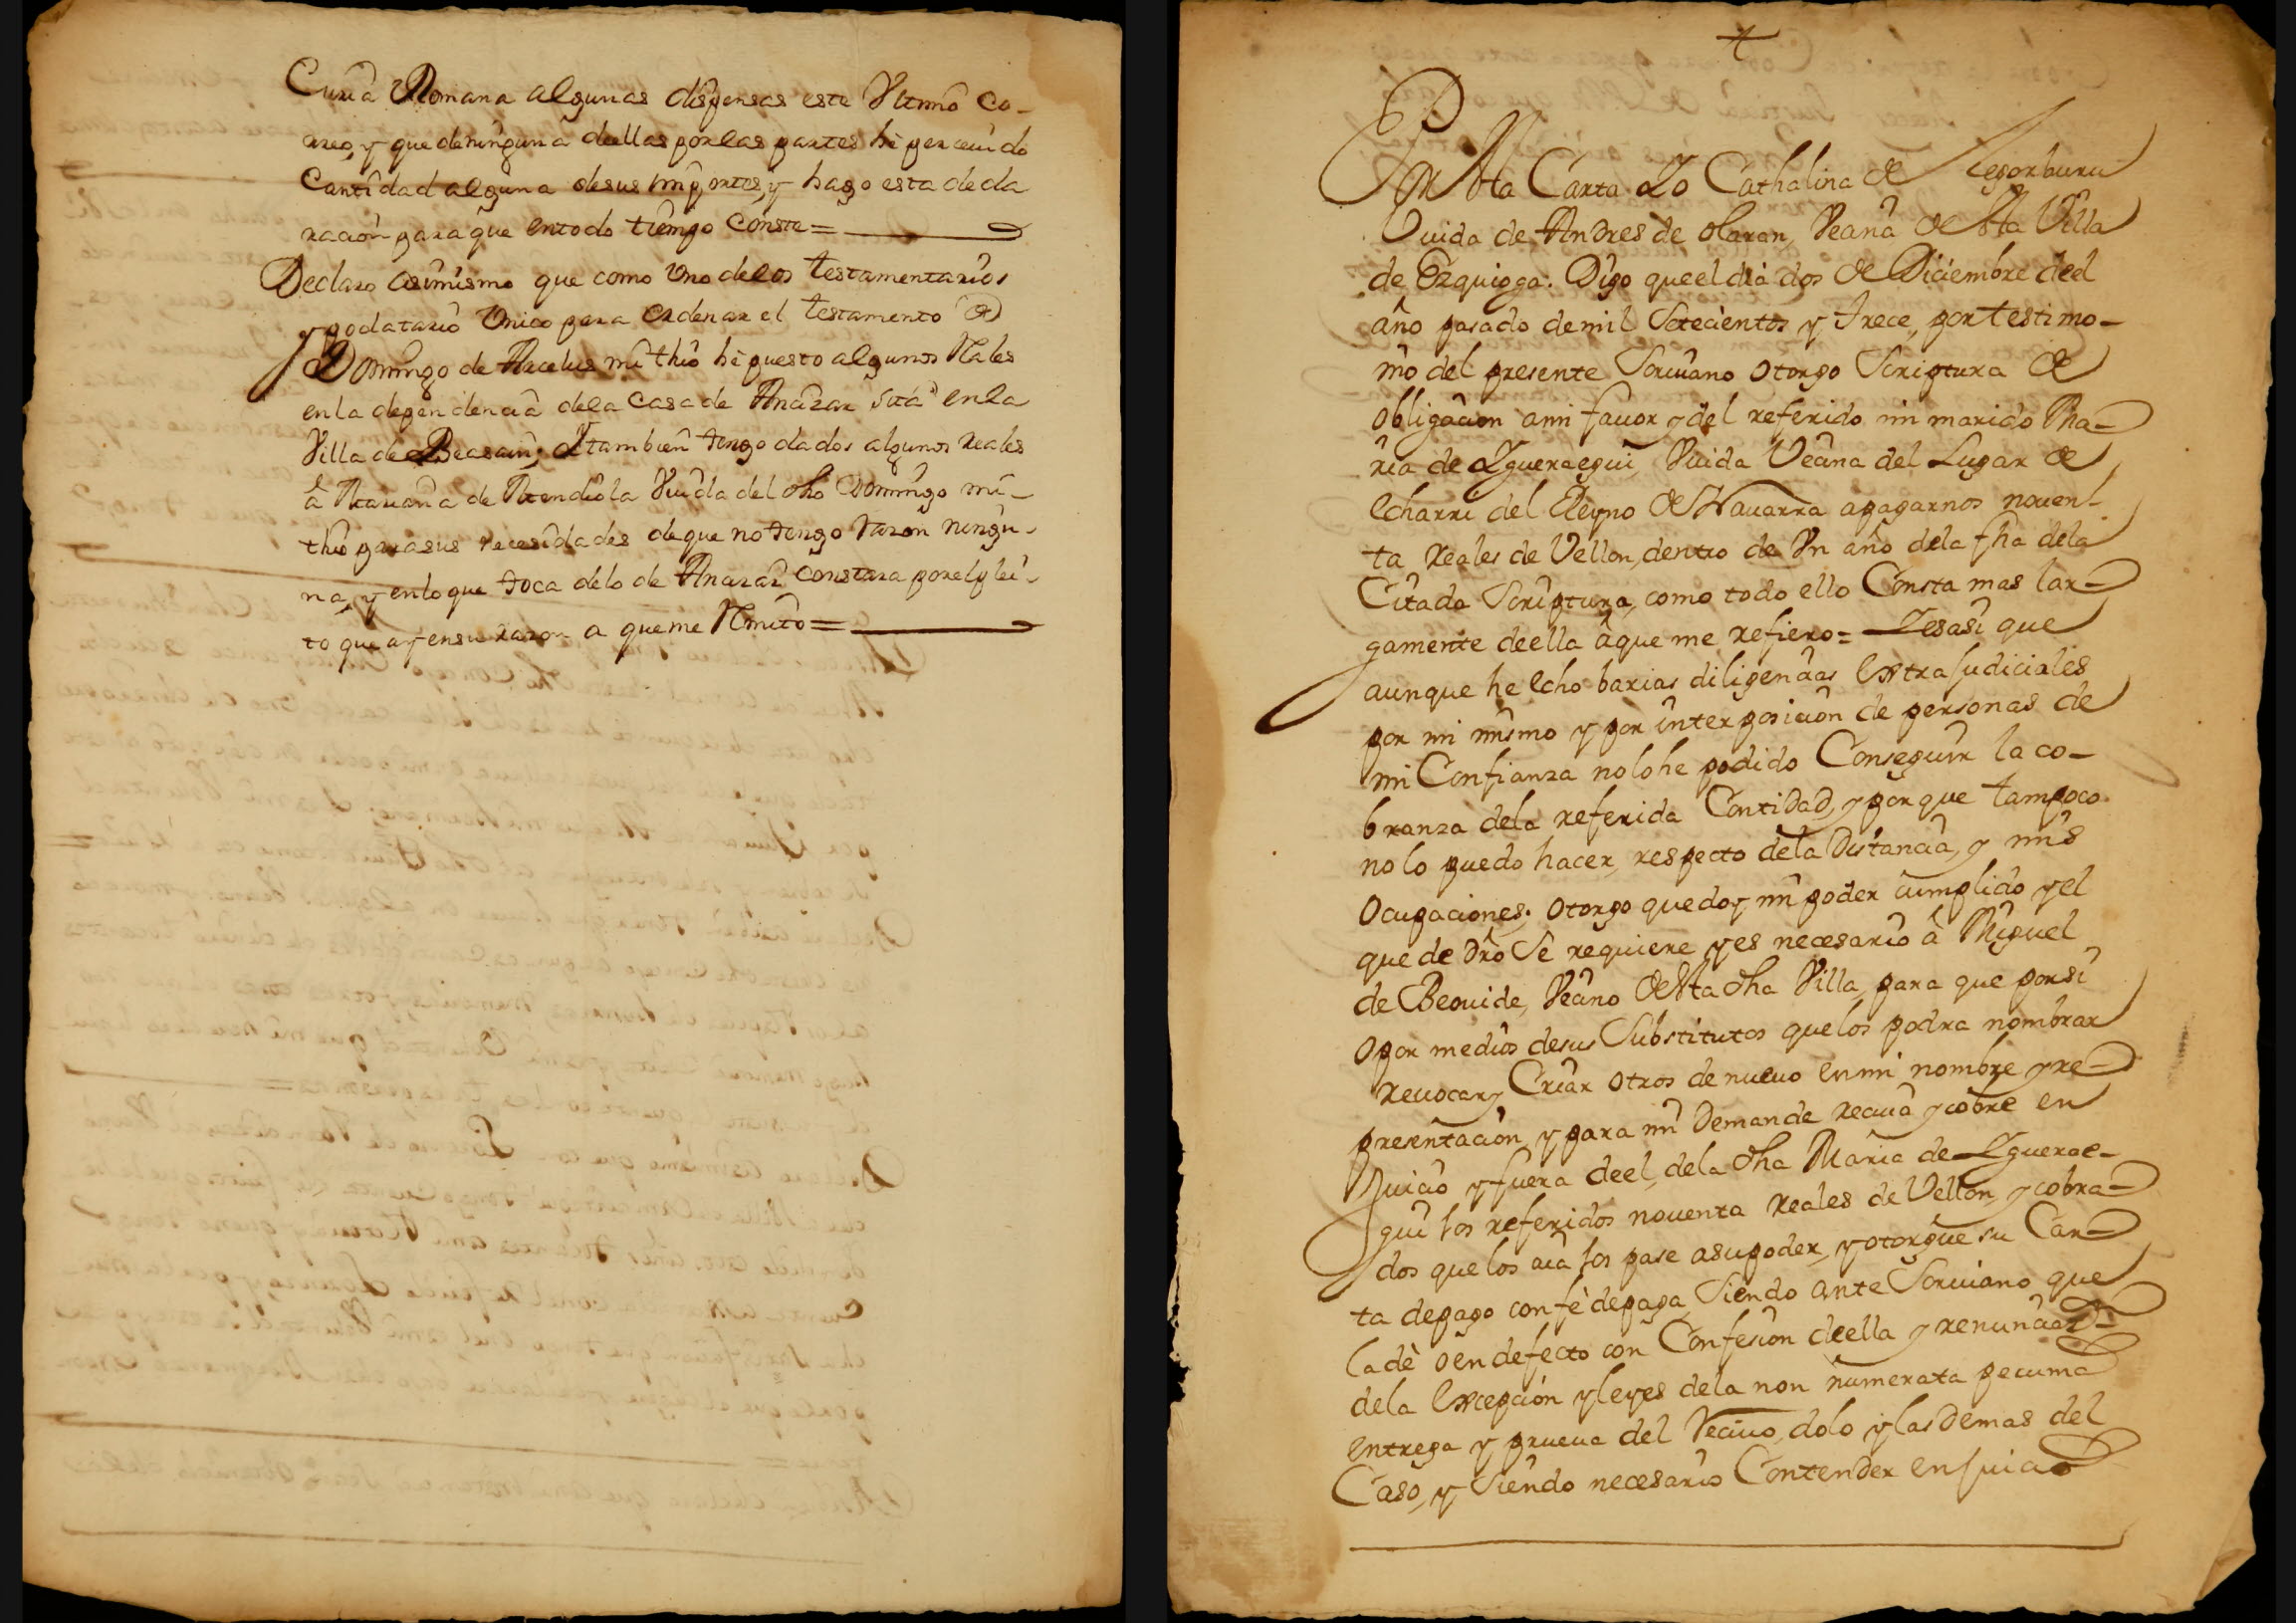 Curia Romana algunas dispensas este Vltimo co-
rreo, y que de ninguna deellas por las partes hè perceuido
Cantidad alguna desus importes, y hago esta decla
racion para que entodo tiempo conste=
Declaro asimismo que como Vno delos testamentarios
y podatario Vnico para ordenar el testamento de
Domingo de Arcelus mi thio hè puesto algunos Rales
en la dependencia dela Casa de Anazar sita en la
Villa de Beasain, y tambien tengo dados algunos Reales
à Mariana de Mendiola Viuda del dho Domingo mi-
thio para sus necesidades de que no tengo razon ningu-
na, y en lo que toca delo de Anazar constara por el plei-
to que ay en su razon a que me Remito=
+
En Esta Carta Yo Cathalina de Legorburu
Viuda de Andres de Olaran, Veçina de Esta Villa
de Ezquioga: Digo que el dia dos de Diciembre deel
año pasado de mil Setecientos y Trece, por testimo-
nio del presente Scriuano otorgo Scriptura de
obligacion a mi fauor y del referido mi marido Ma-
ria de Ygueraegui, Viuda Veçina del Lugar de
Echarri del Reyno de Nauarra apagarnos nouen-
ta Reales de Vellon, dentro de Vn año dela fha dela
Citada Scriptura, como todo ello Consta mas lar-
gamente deella àque me refiero= Yes asi que
aunque he echo barias diligencias Extrajudiciales
por mi mismo y por interposicion de personas de
mi Confianza nolohe podido Conseguir la co-
branza dela referida Contidad, y porque tampoco
no lo puedo hacer, respecto dela Distancia, y mis
ocupaciones. otorgo quedoy mi poder cumplido y el
que de Dro Se requiere y es necesario à Miguel
de Beouide, Veçino de Esta dha Villa, para que por si
o por medios desus Substitutos quelos podra nombrar
reuocar y Criar otros de nueuo en mi nombre y re-
presentacion, y para mi Demande reciua y cobre en
Juicio y fuera deel, dela dha Maria de Yguerae-
gui los referidos nouenta Reales de Vellon, y cobra-
dos que los aia los pase asu poder, y otorgue su Car-
ta depago con fè depaga Siendo ante Scriuano que
la dè o en defecto con Confesion deella y renunciaz.
dela Excepcion y leyes dela non numerata pecunia
entrega y prueua del reciuo, dolo y las Demas del
Caso, y Siendo necesario Contender en Juicio